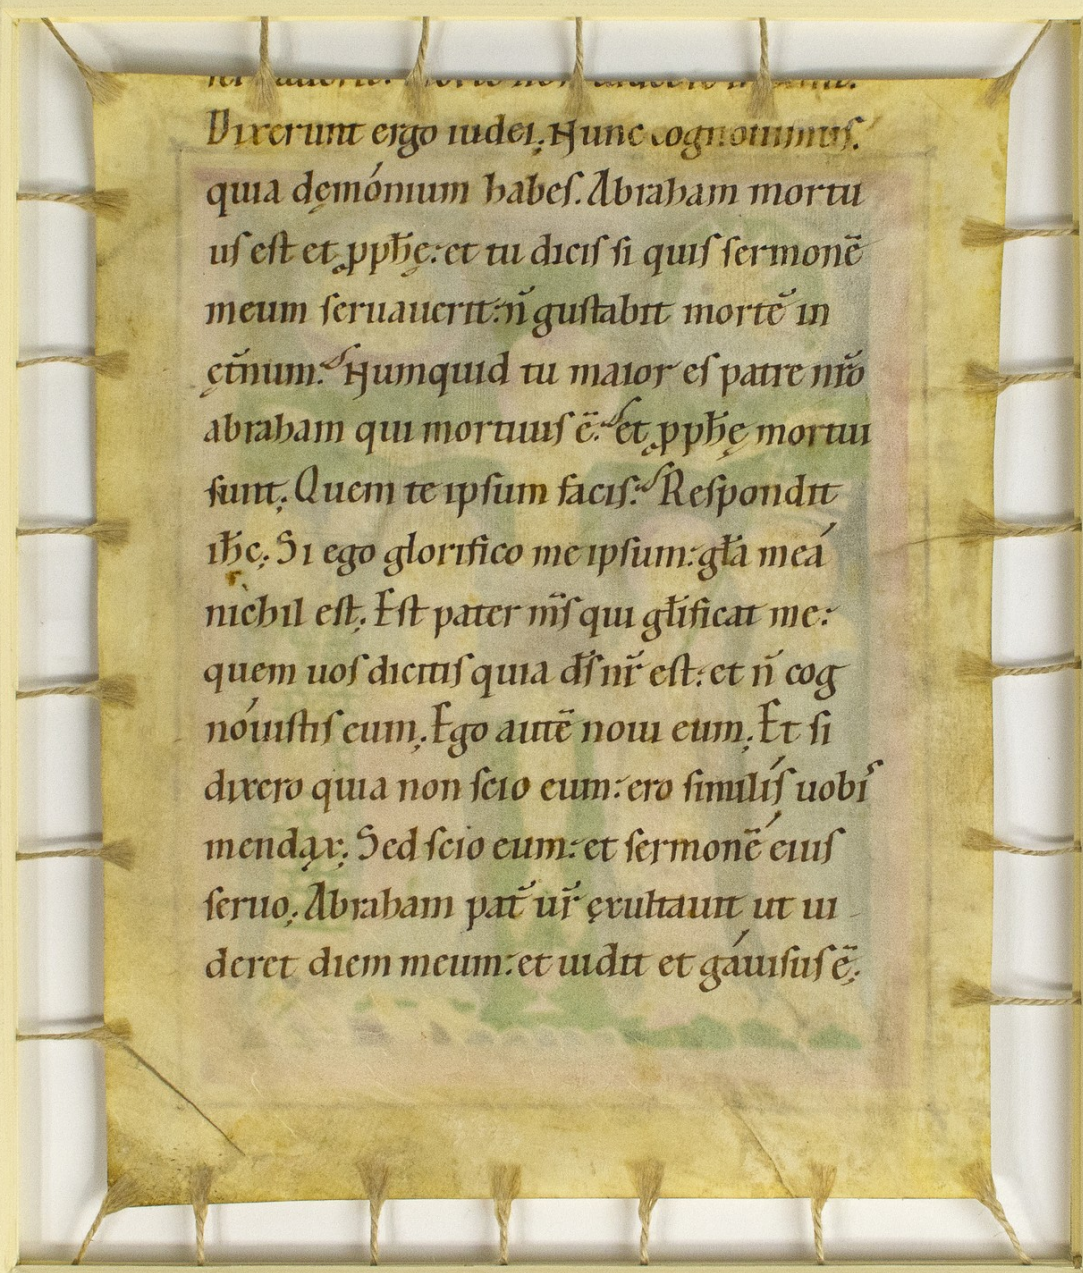 Dixerunt ergo iudei; Nunc cognouimus.
quia dęmónium habes. Abraham mortu
us est et ꝓpħę: et tu dicis si quis sermonē
meum seruauerit: n̄ gustabit mortē in
ęt̄num. Numquid tu maior es patre nr̄o
abraham qui mortuus ē. et ꝓpħę mortui
sunt; Quem te ipsum facis. Respondit
iħc; Si ego glorifico me ipsum: gl̄a meá
nichil est; Est pater m̄s qui gl̄ificat me:
quem uos dicitis quia d̄s nr̄ est: et n̄ cog
nóuistis eum; Ego autē noui eum; Et si
dixero quia non scio eum: ero similis uobis
mendax; Sed scio eum: et sermonē eius
seruo; Abraham pat̄ ur̄ ęxultauit ut ui
deret diem meum: et uidit et gáuisus ē;